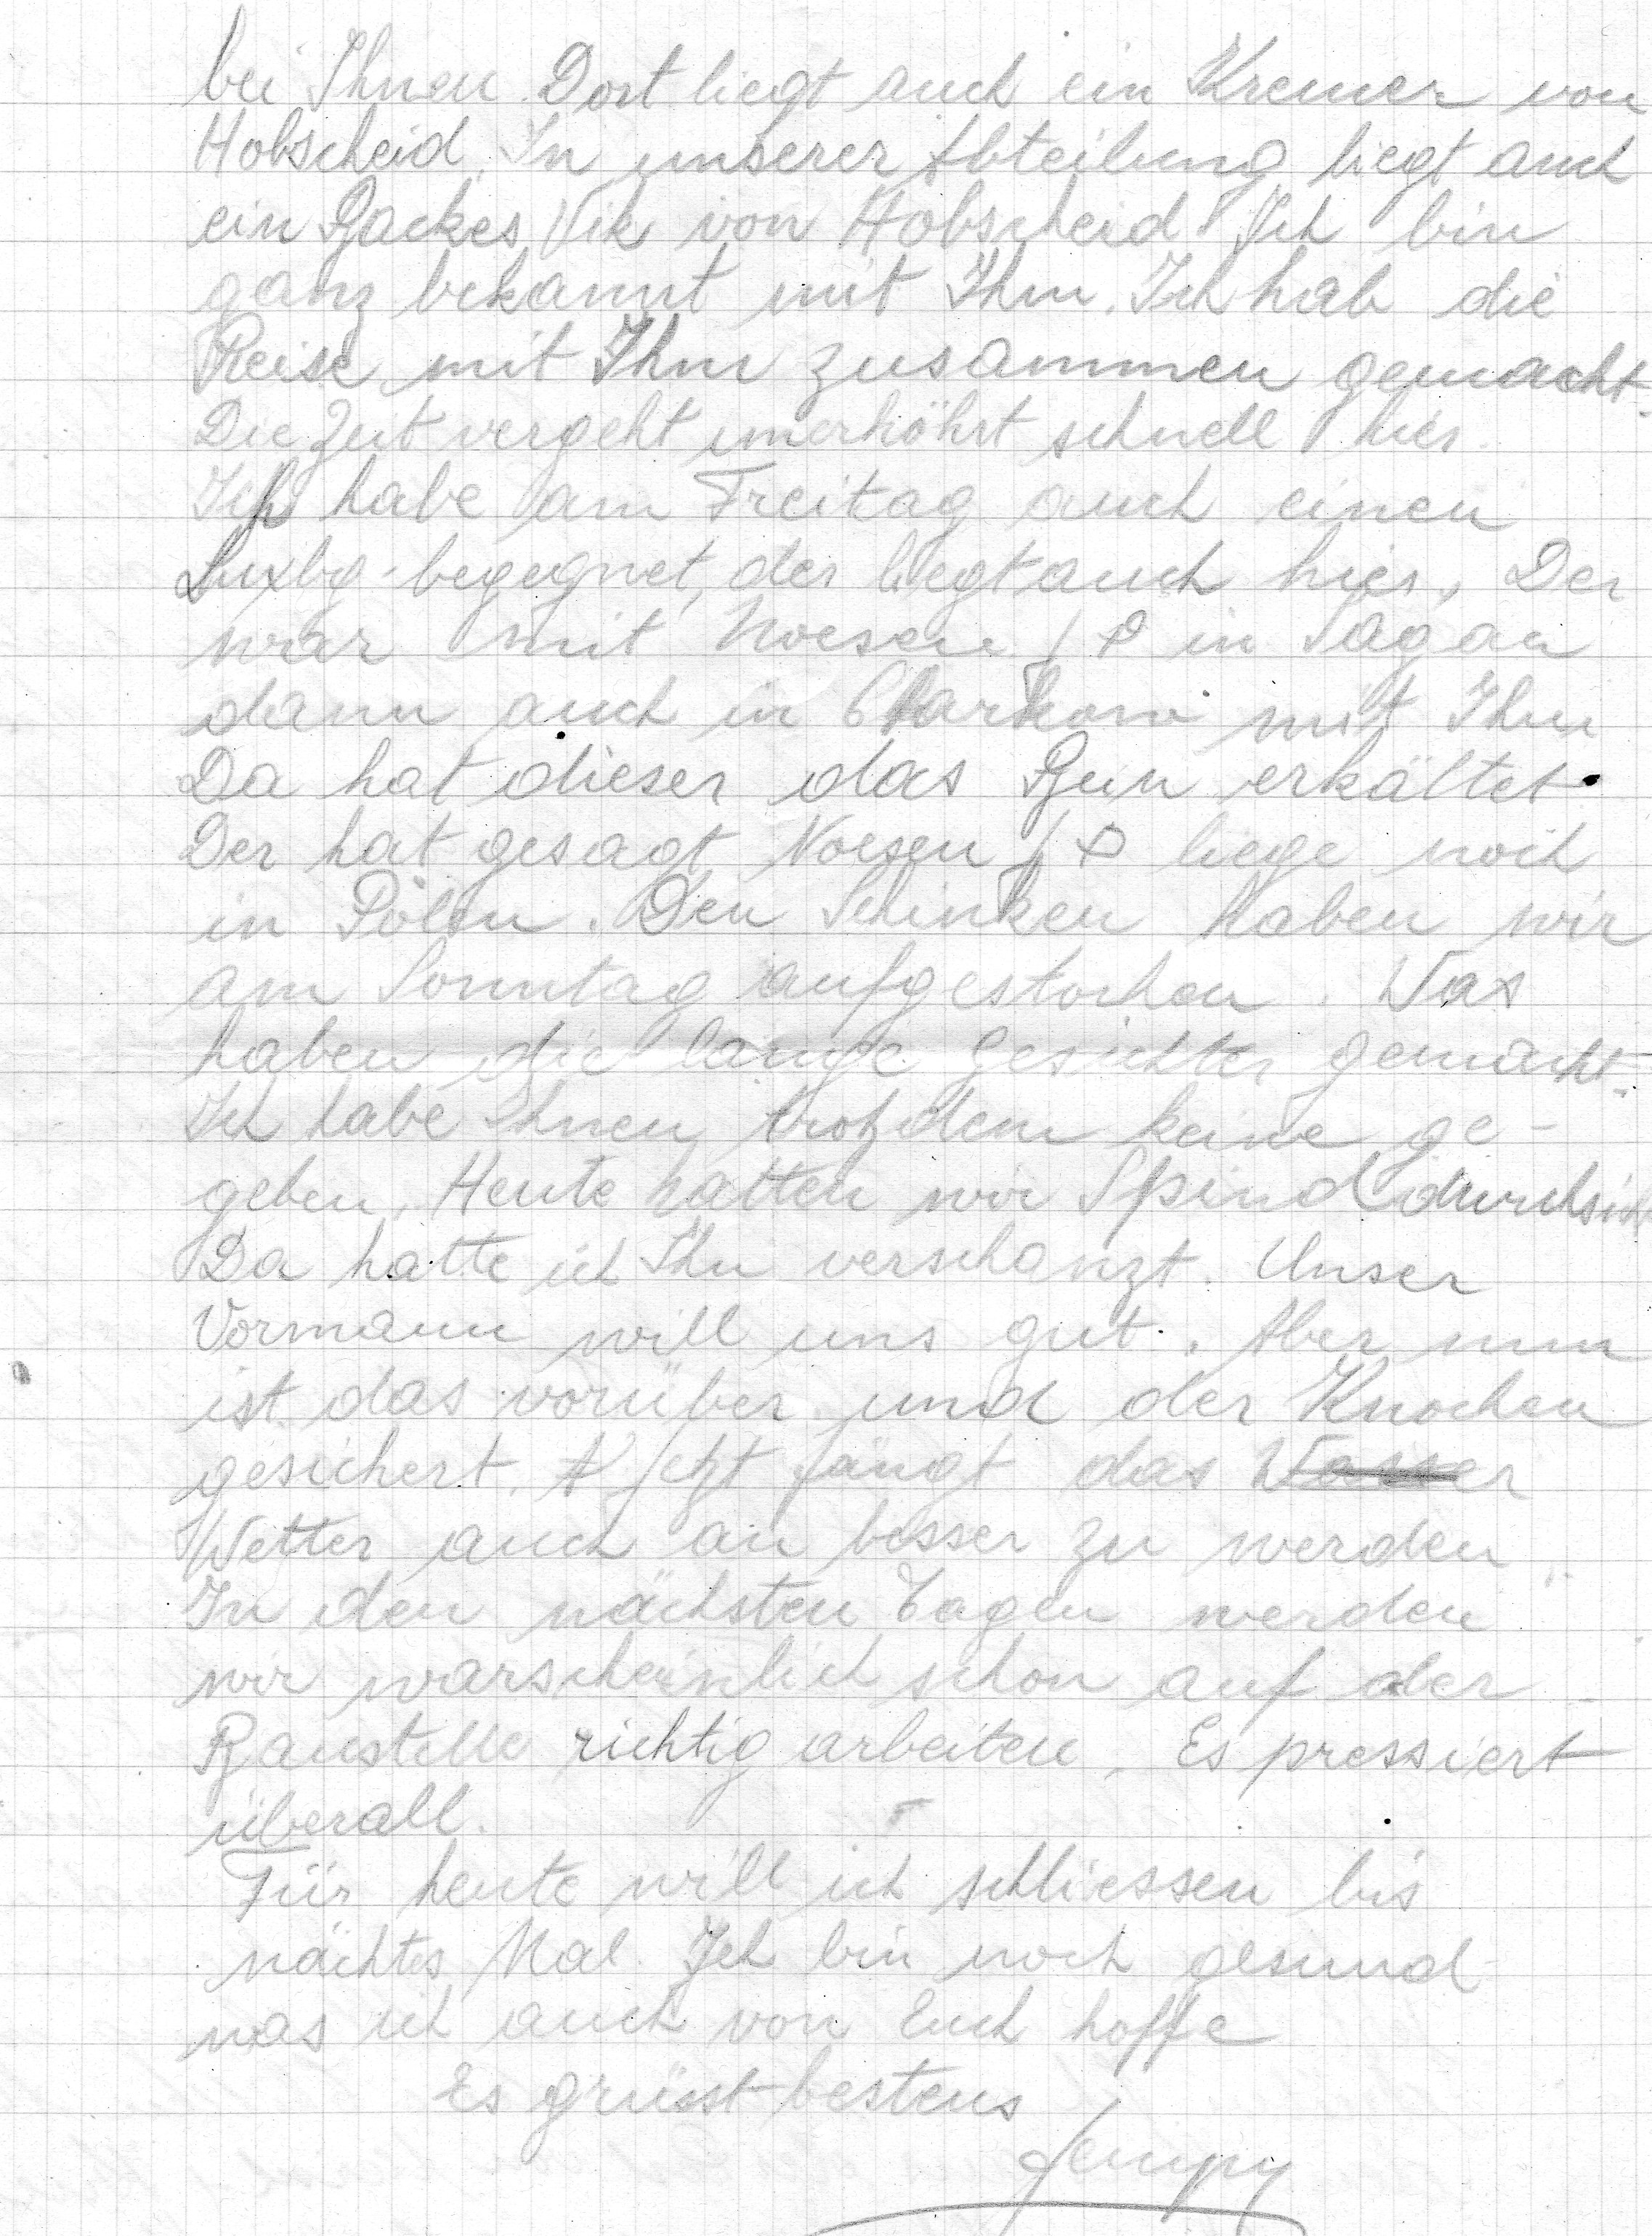 bei Ihnen. Dort liegt auch ein Kremer von
Hobscheid. In unserer Abteilung liegt auch
ein Backes Vik von Hobscheid. Ich bin
ganz bekannt mit Ihm. Ich hab die
Reise mit Ihm zusammen gemacht.
Die Zeit vergeht unerhöhrt schnell hier.
Ich habe am Freitag auch einen
Luxbg. begegnet, der liegt auch hier, Der
war mit Noesen in Sagan
dann auch in Charkow mit Ihm
Da hat dieser das Bein erkältet.
Der hat gesagt Noesen liege noch
in Polen. Den Schinken haben wir
am Sonntag aufgestochen. Was
haben die lange Gesichter gemacht.
Ich habe Ihnen trotzdem keine ge-
geben. Heute hatten wir Spind durchsich
Da hatte ich Ihn verschanzt. Unser
Vormann will uns gut. Aber nun
ist das vorüber und der Knochen
gesichert. Jetzt fängt das Wasser
Wetter auch an besser zu werden.
In den nächsten Tagen werden
wir warscheinlich schon auf der
Baustelle richtig arbeiten. Es pressiert
überall.
Für heute will ich schliessen bis
nächtes Mal. Ich bin noch gesund
was ich auch von Euch hoffe
Es grüsst bestens
Jempy